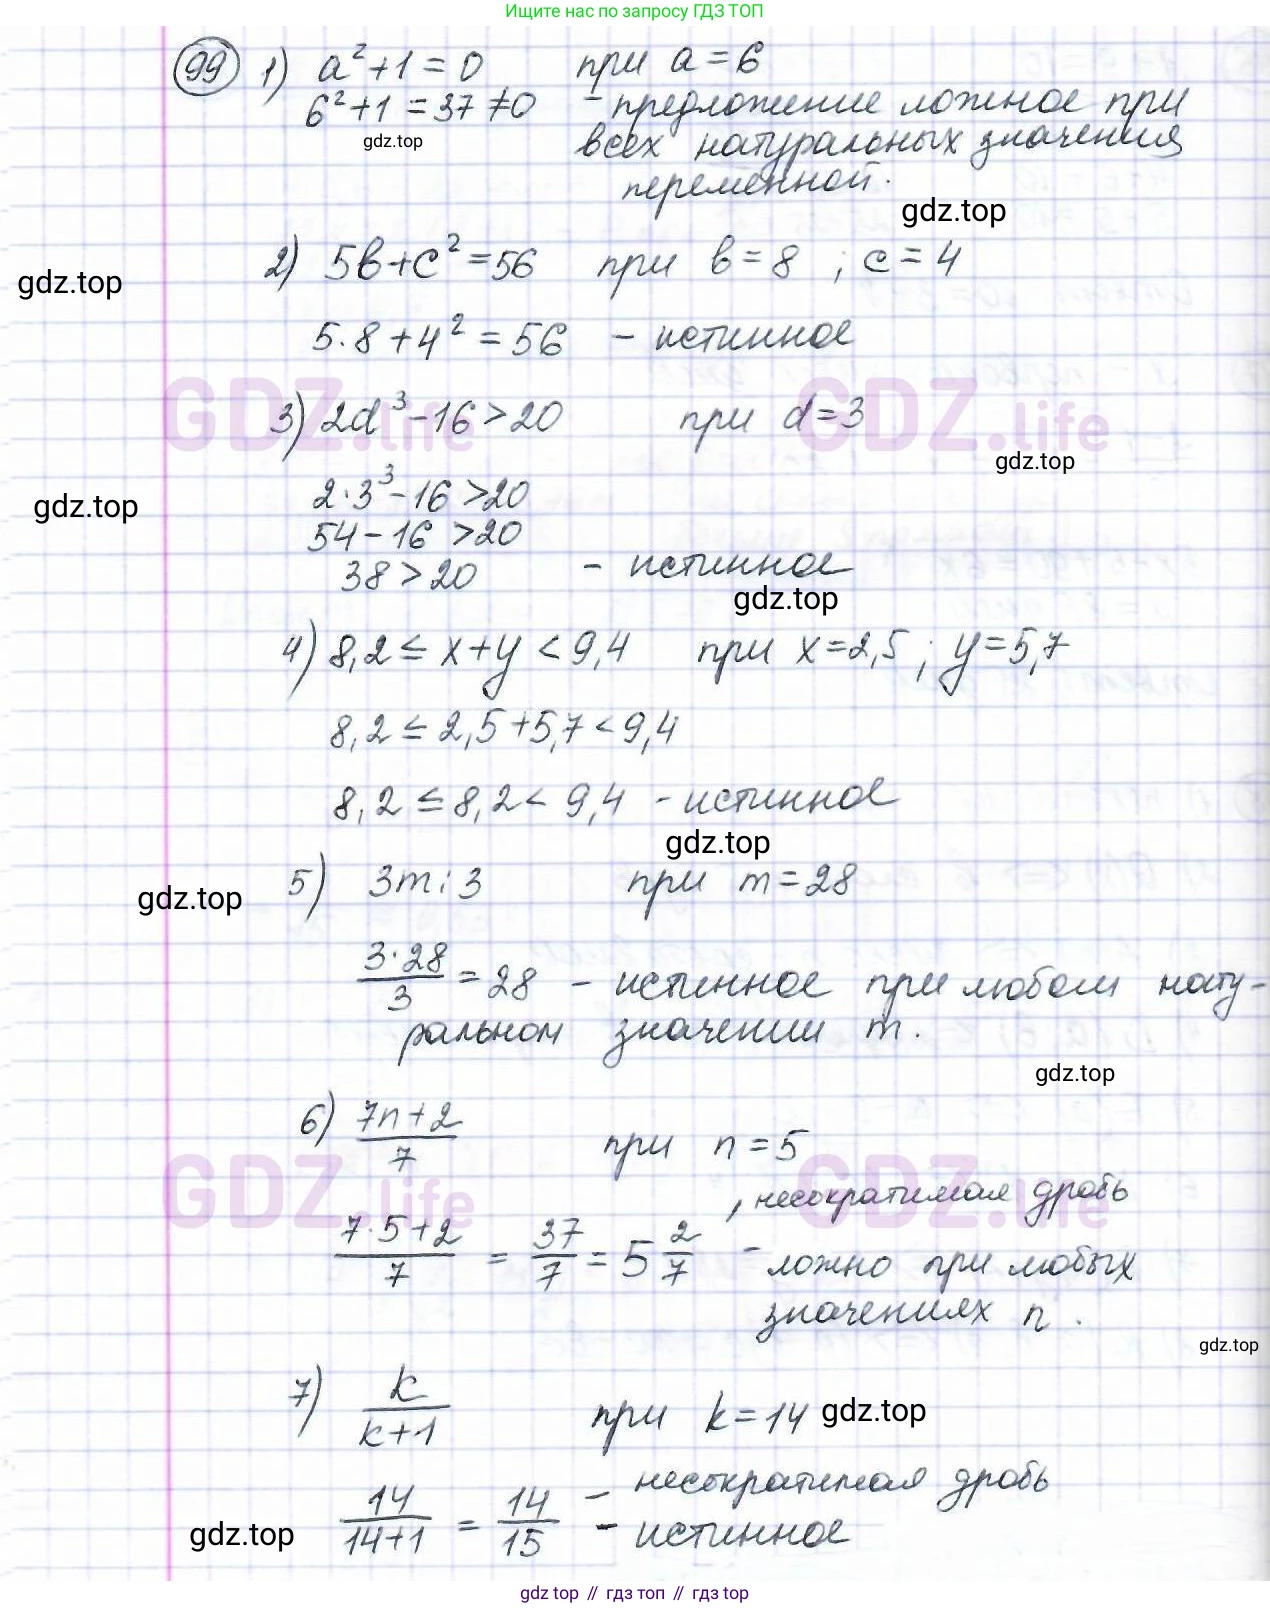 Ищите нас по запросу ГДЗ ТОП
99 1) a²+1=0 при a=6
6²+1=37≠0 - предложение ложное при
gdz.top
всех натуральных значения
переменной.
gdz.top
2) 5в+c²=56 при в=8 ; c=4
gdz.top
5·8+4²=56 - истинное
GDZ.life GDZ.life
3) 2d³-16>20 при d=3
gdz.top
2·3³-16>20
gdz.top
54-16>20
38>20 - истинное
gdz.top
4) 8,2≤x+y<9,4 при x=2,5; y=5,7
8,2≤2,5+5,7<9,4
8,2≤8,2<9,4 - истинное
gdz.top
5) 3m:3 при m=28
gdz.top
3·28/3=28 - истинное при любом нату-
ральном значении m.
gdz.top
6) 7n+2/7 при n=5
GDZ.life GDZ.life
, несократимая дробь
7·5+2/7 = 37/7 = 5 2/7 - ложно при любых
значениях n.
gdz.top
7) k/k+1 при k=14
gdz.top
- несократимая дробь
14/14+1 = 14/15 - истинное
gdz.top
gdz.top // гдз топ // гдз top